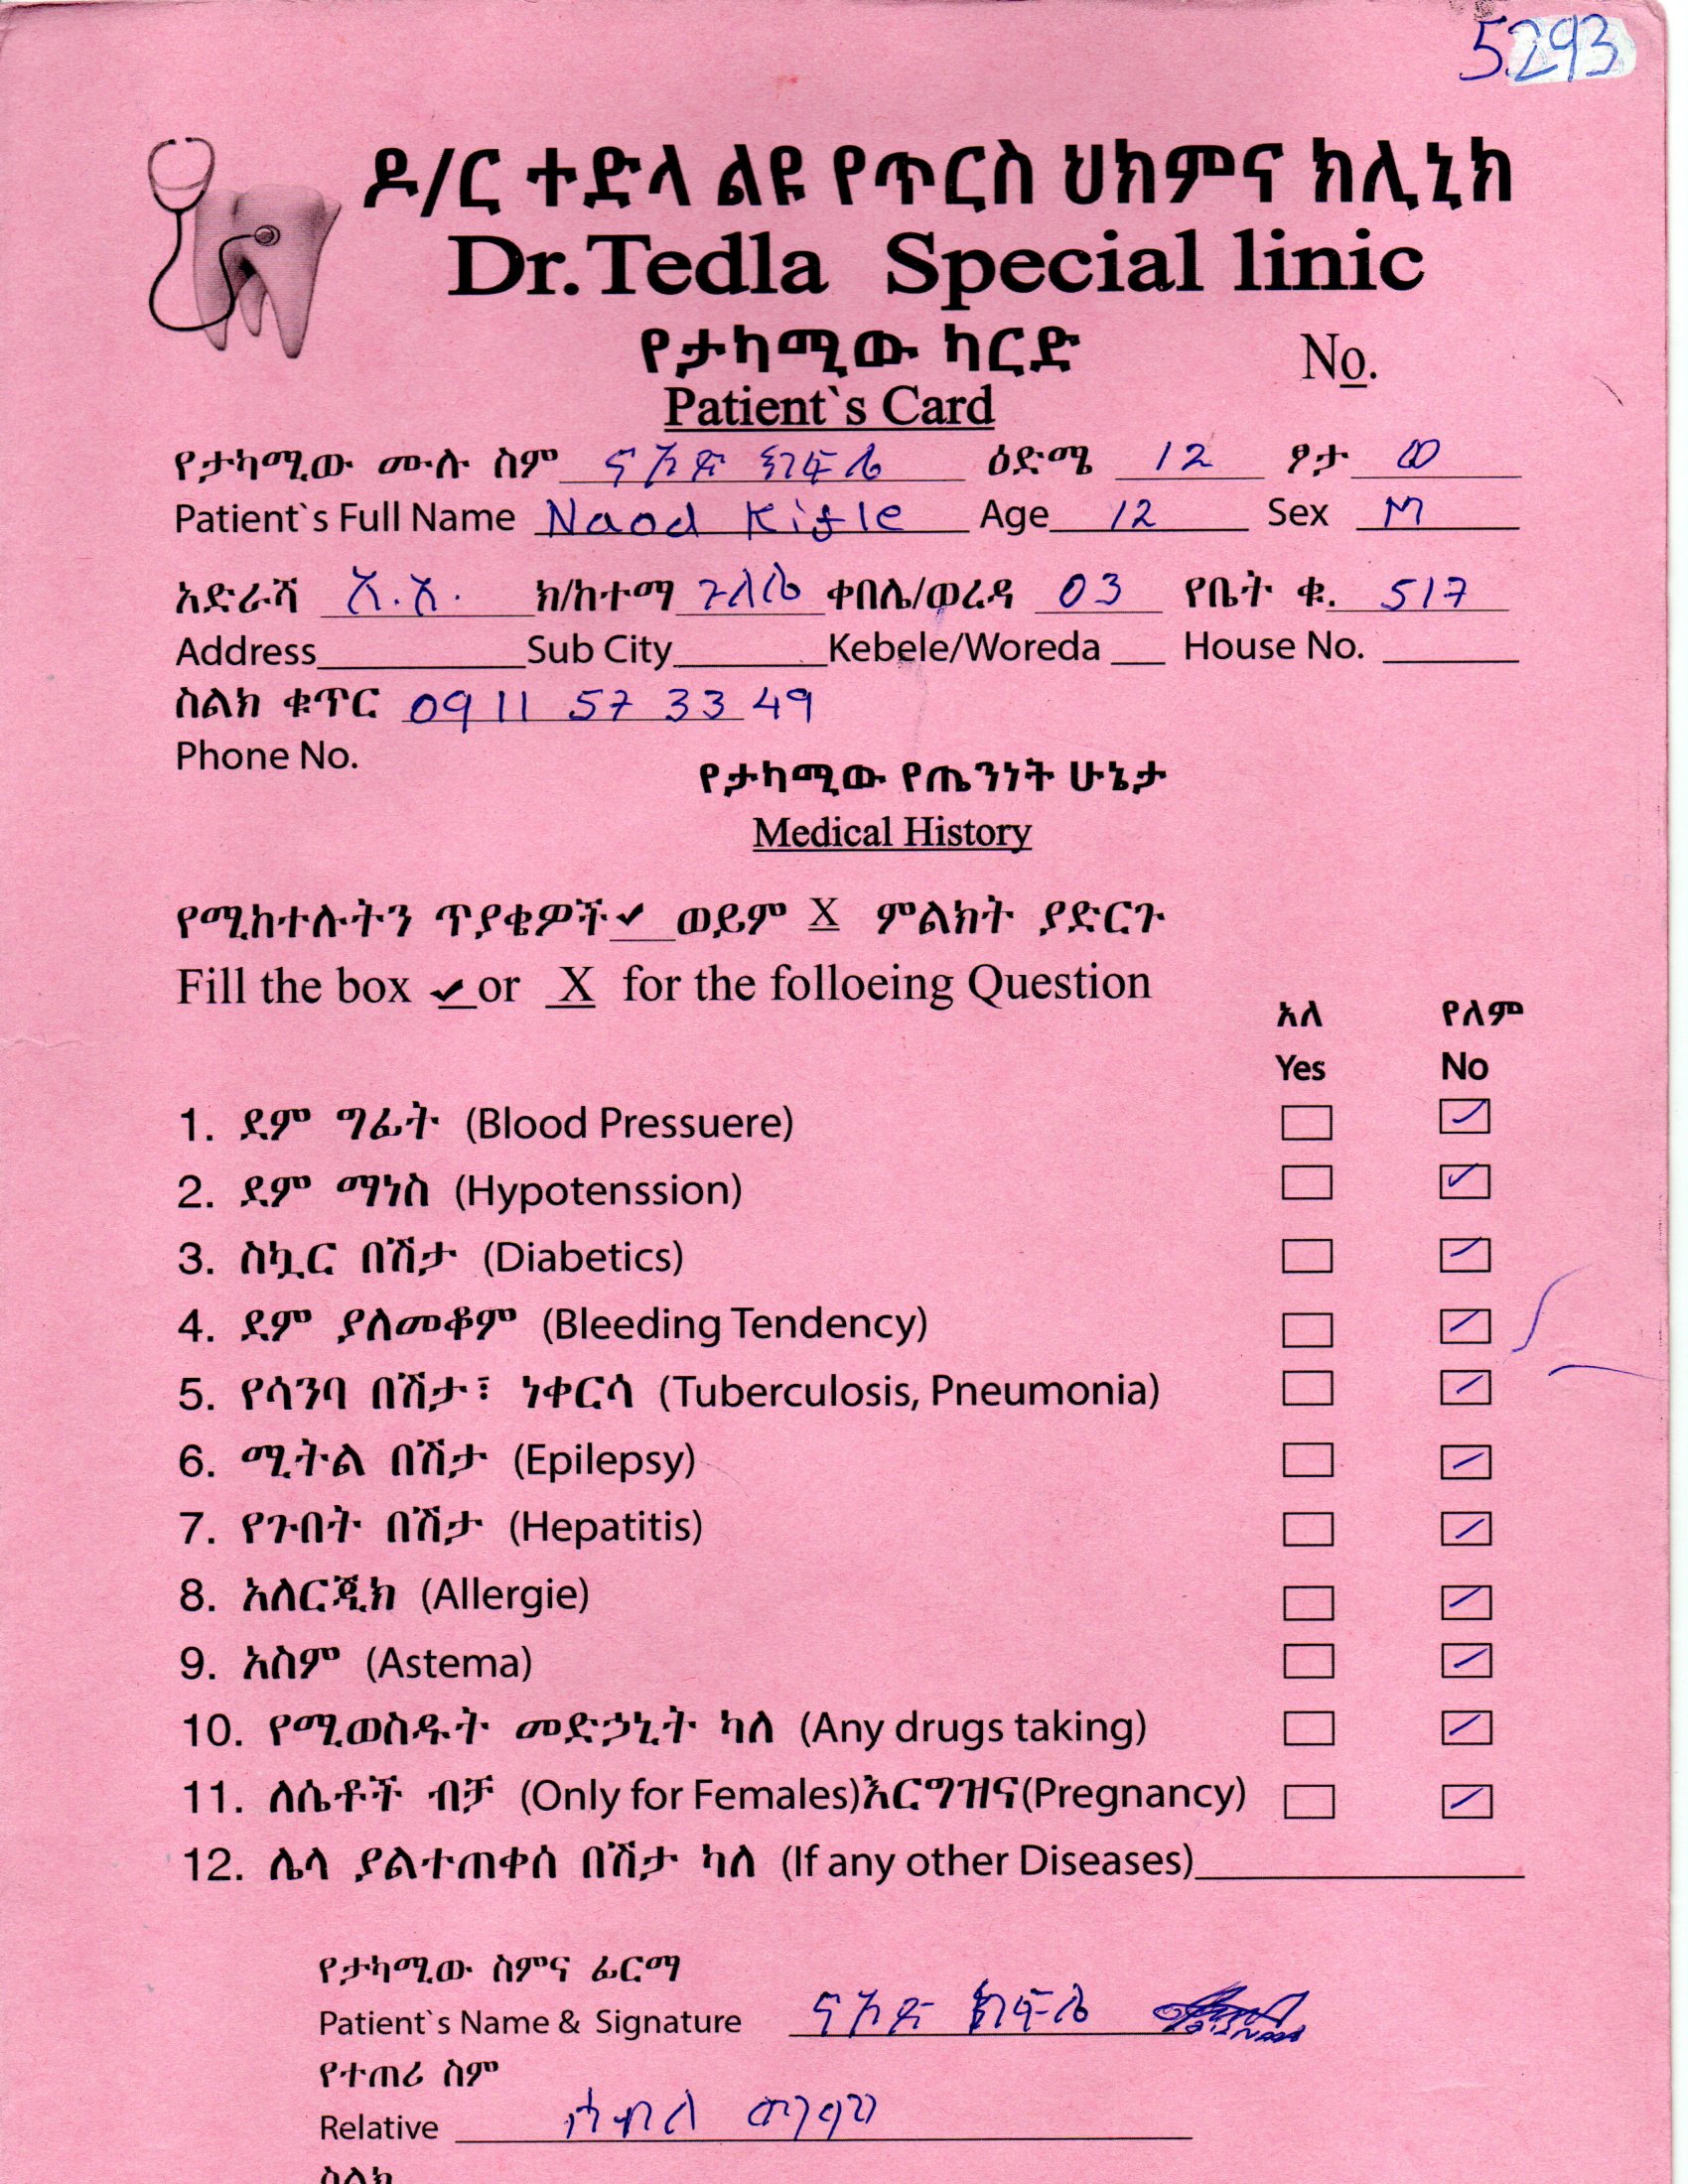 5293
ዶ/ር ተድላ ልዩ የጥርስ ህክምና ክሊኒክ
Dr.Tedla Special linic
የታካሚው ካርድ No.
Patient`s Card
የታካሚው ሙሉ ስም ናኦድ ክፍሌ ዕድሜ 12 ፆታ ወ
Patient`s Full Name Naod Kifle Age 12 Sex M
አድራሻ አ.አ. ክ/ከተማ ጉለሌ ቀበሌ/ወረዳ 03 የቤት ቁ. 517
Address Sub City Kebele/Woreda House No.
ስልክ ቁጥር 09 11 57 33 49
Phone No.
የታካሚው የጤንነት ሁኔታ
Medical History
የሚከተሉትን ጥያቄዎች ✓ ወይም X ምልክት ያድርጉ
Fill the box ✓ or X for the folloeing Question
አለ የለም
Yes No
1. ደም ግፊት (Blood Pressuere) ✓
2. ደም ማነስ (Hypotenssion) ✓
3. ስኳር በሽታ (Diabetics) ✓
4. ደም ያለመቆም (Bleeding Tendency) ✓
5. የሳንባ በሽታ፣ ነቀርሳ (Tuberculosis, Pneumonia) ✓
6. ሚትል በሽታ (Epilepsy) ✓
7. የጉበት በሽታ (Hepatitis) ✓
8. አለርጂክ (Allergie) ✓
9. አስም (Astema) ✓
10. የሚወስዱት መድኃኒት ካለ (Any drugs taking) ✓
11. ለሴቶች ብቻ (Only for Females)እርግዝና(Pregnancy) ✓
12. ሌላ ያልተጠቀሰ በሽታ ካለ (If any other Diseases)
የታካሚው ስምና ፊርማ
Patient`s Name & Signature ናኦድ ክፍሌ
የተጠሪ ስም
Relative
ስልክ